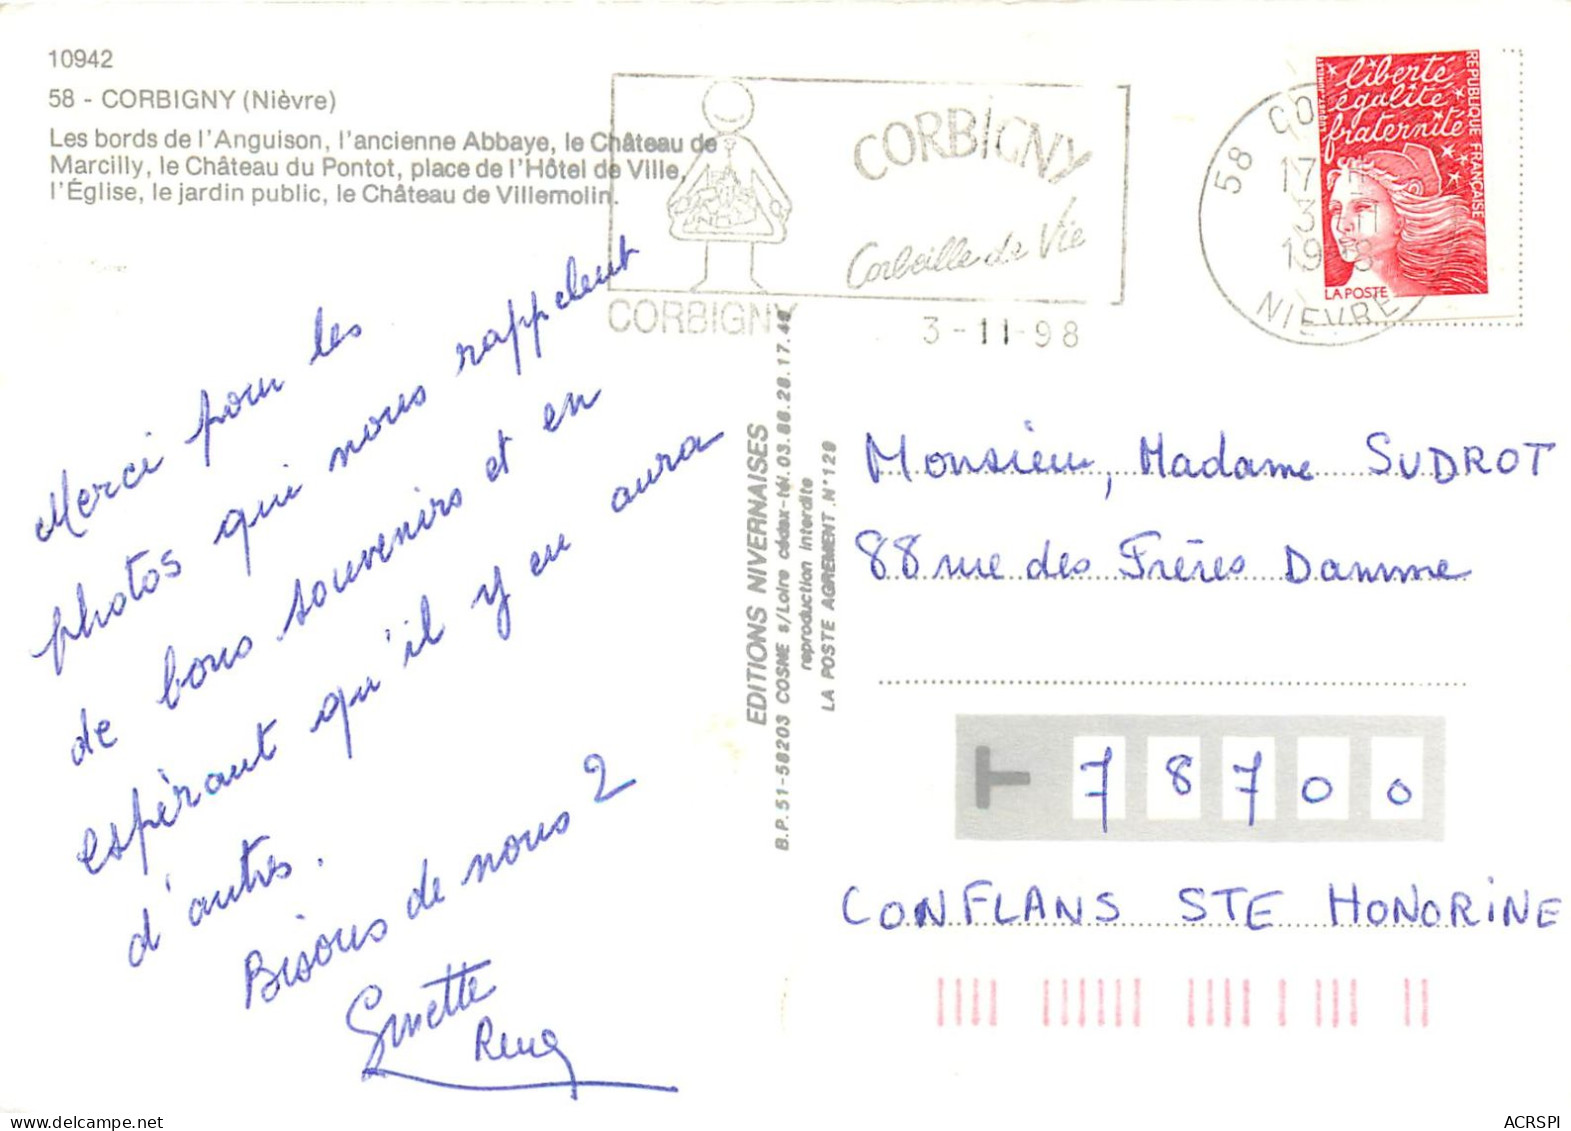 10942
58 - CORBIGNY (Nièvre)
Les bords de l'Anguison, l'ancienne Abbaye, le Château de
Marcilly, le Château du Pontot, place de l'Hôtel de Ville,
l'Église, le jardin public, le Château de Villemolin.
CORBIGNY
Corbeille de Vie
CORBIGNY
3-11-98
58 CO
17 H
3 11
1998
NIEVRE
liberté
égalité
fraternité
REPUBLIQUE FRANÇAISE
LA POSTE
Merci pour les
photos qui nous rappelent
de bons souvenirs et en
espérant qu'il y en aura
d'autres.
Bisous de nous 2
Ginette
René
EDITIONS NIVERNAISES
B.P. 51-58203 COSNE s/Loire cédex-tél. 03.86.28.17.44
reproduction interdite
LA POSTE AGREMENT N°129
Monsieur, Madame SUDROT
88 rue des Frères Damme
78700
CONFLANS STE HONORINE
ACRSPI